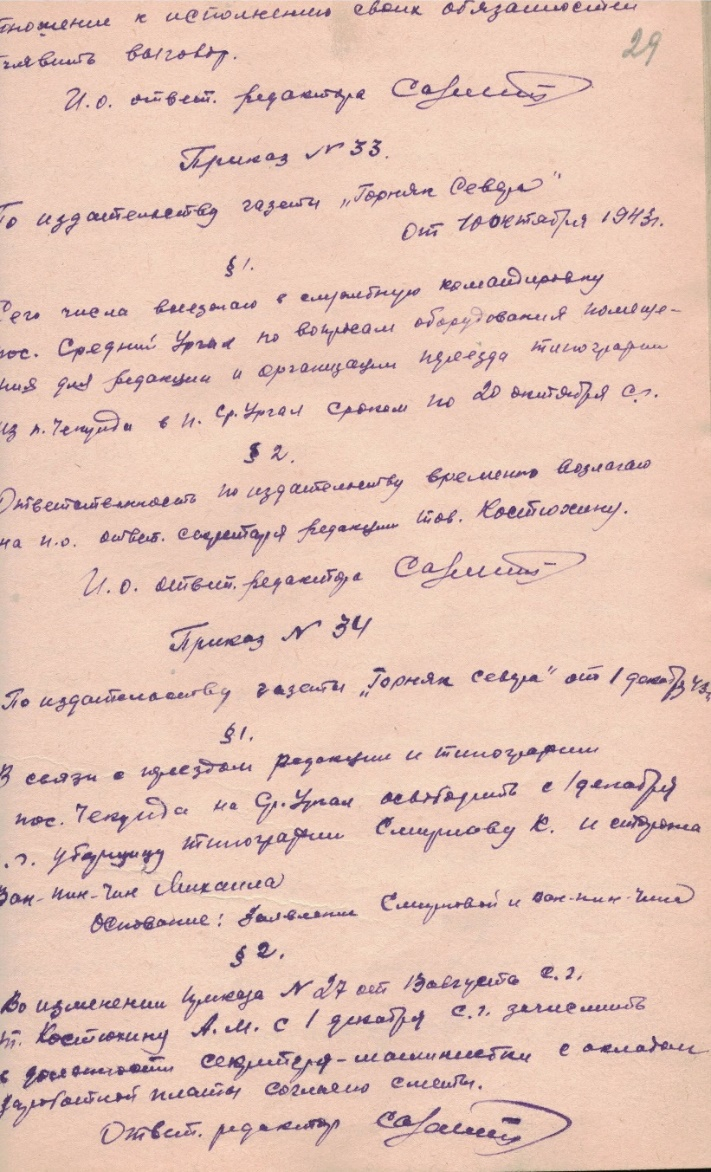 тношение к исполнению своих обязанностей
'явить выговор.
29
И.о. ответ. редактора
Приказ № 33.
По издательству газеты „Горняк Севера"
От 10 октября 1943г.
§ 1.
Сего числа выезжаю в служебную командировку
пос. Средний Ургал по вопросам оборудования помеще-
ния для редакции и организации переезда типографии
из п. Чекунда в п. Ср. Ургал сроком по 20 октября с.г.
§ 2.
Ответственность по издательству временно возлагаю
на и.о. ответ. секретаря редакции тов. Костюхину.
И.о. ответ. редактора
Приказ № 34
По издательству газеты „Горняк севера" от 1 декабря 43г.
§ 1.
В связи с переездом редакции и типографии
пос. Чекунда на Ср. Ургал освободить с 1 декабря
.г. уборщицу типографии Смирнову К. и сторожа
Ван-пин-чин Михаила
Основание: Заявление Смирновой и Ван-пин-чина
§ 2.
Во изменении приказа № 27 от 13 августа с.г.
т. Костюхину А.М. с 1 декабря с.г. зачислить
в должности секретаря-машинистки с окладом
заработной платы согласно сметы.
Ответ. редактор